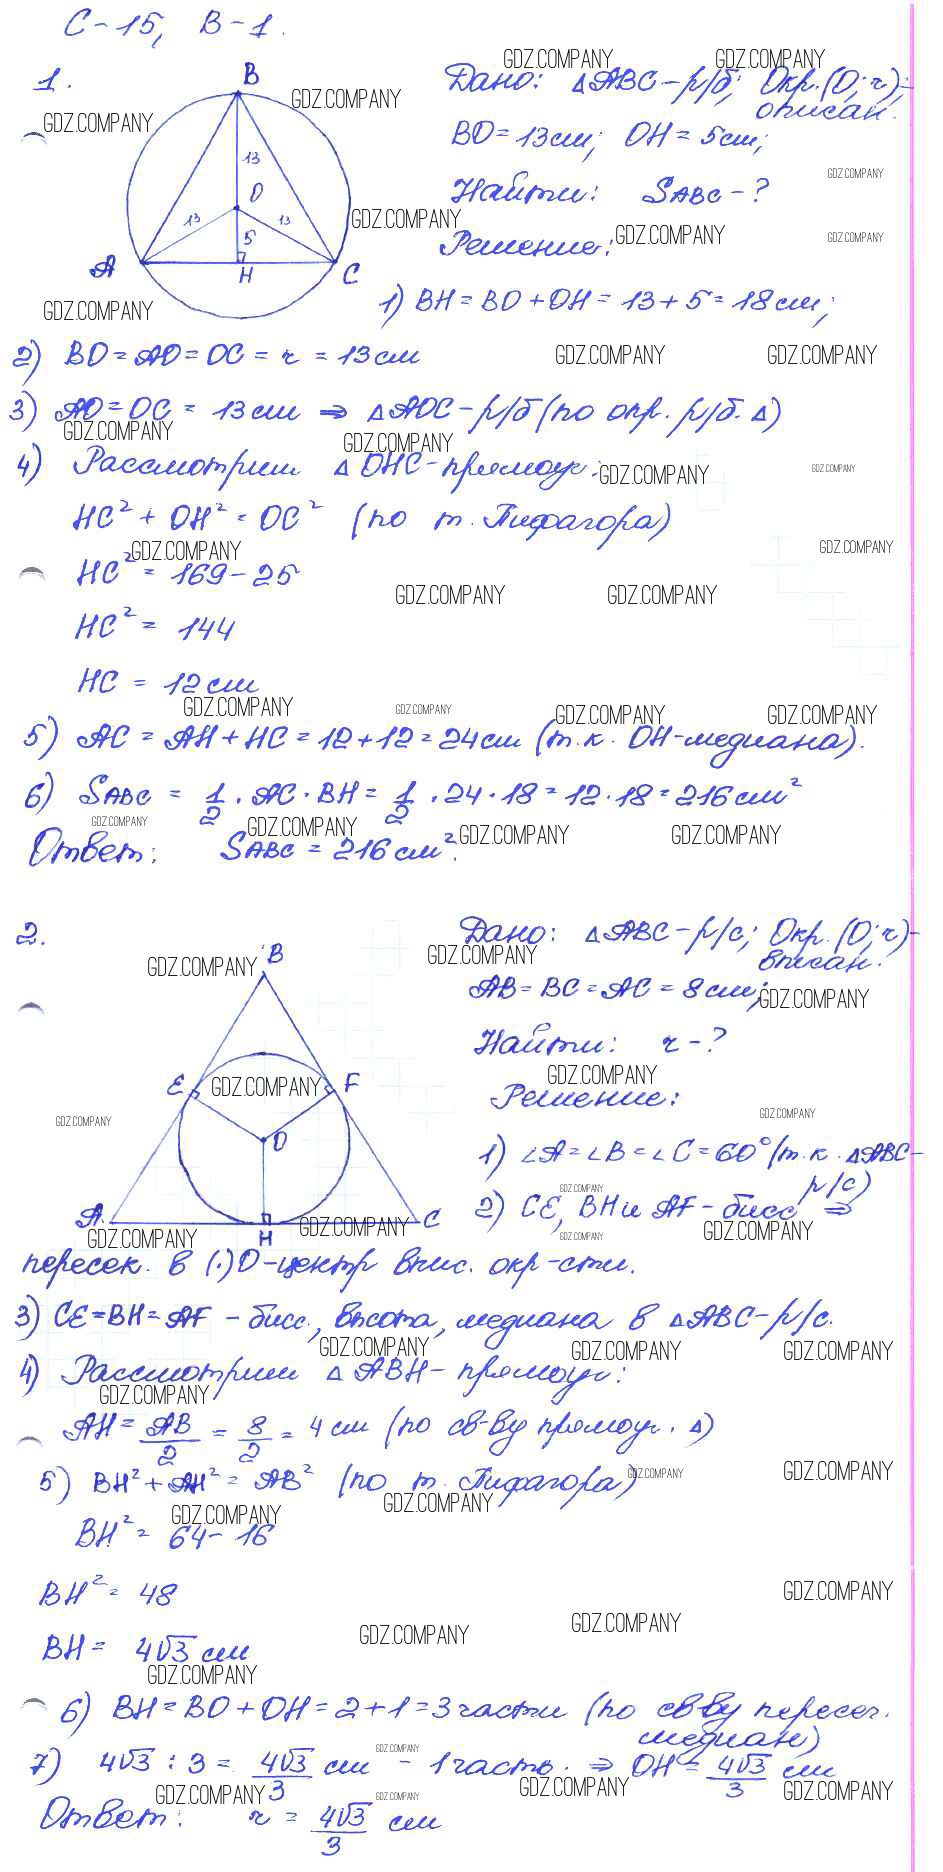 С-15, В-1.
1.
B
13
O
13
13
5
A
H
C
Дано: △ABC-р/б; Окр.(O; r)-
описан.
BO=13см; OH=5см;
Найти: SABC-?
Решение:
1) BH=BO+OH=13+5=18см;
2) BO=AO=OC=r=13см
3) AO=OC=13см ⇒ △AOC-р/б (по опр. р/б. △)
4) Рассмотрим △OHC-прямоуг.:
HC²+OH²=OC² (по т. Пифагора)
HC²=169-25
HC²=144
HC=12см
5) AC=AH+HC=12+12=24см (т.к. OH-медиана).
6) SABC = 1/2 · AC · BH = 1/2 · 24 · 18 = 12 · 18 = 216 см²
Ответ: SABC = 216 см².
2.
B
E
F
O
A
H
C
Дано: △ABC-р/с; Окр.(O; r)-
вписан.
AB=BC=AC=8см;
Найти: r-?
Решение:
1) ∠A=∠B=∠C=60° (т.к. △ABC-
р/с)
2) CE, BH и AF-бисс ⇒
пересек. в (·)O-центр впис. окр-сти.
3) CE=BH=AF-бисс., высота, медиана в △ABC-р/с.
4) Рассмотрим △ABH-прямоуг:
AH = AB/2 = 8/2 = 4 см (по св-ву прямоуг. △)
5) BH²+AH²=AB² (по т. Пифагора)
BH²=64-16
BH²=48
BH=4√3 см
6) BH=BO+OH=2+1=3 части (по св-ву пересеч.
медиан)
7) 4√3 : 3 = 4√3/3 см - 1 часть. ⇒ OH = 4√3/3 см
Ответ: r = 4√3/3 см
GDZ.COMPANY